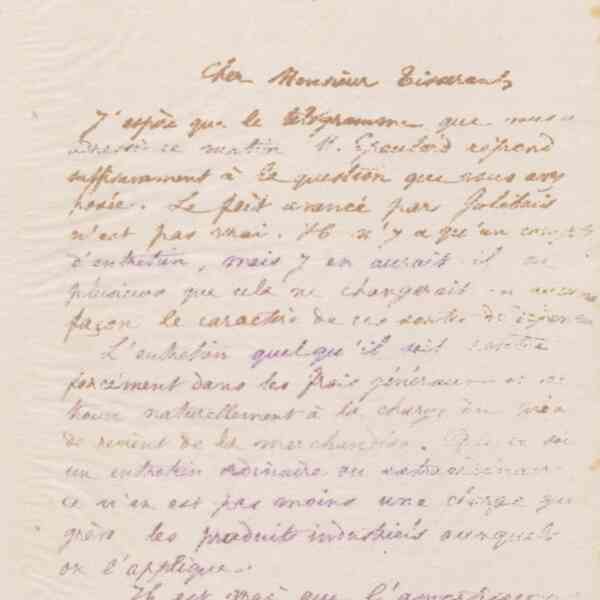 Cher Monsieur Tisserant,
J'espère que le télégramme que nous a
adressé ce matin M. répond
suffisamment à la question que vous avez
posée. Le fait avancé par
n'est pas vrai. Il n'y a qu'un compte
d'entretien, mais y en aurait il eu
plusieurs que cela ne changerait en aucune
façon le caractère de ces sortes de dépenses
L'entretien quel qu'il soit rentre
forcément dans les frais généraux et se
trouve naturellement à la charge du prix
de revient de la marchandise. Que ce soi
un entretien ordinaire ou extraordinaire
ce n'en est pas moins une charge qui
grève les produits industriels auxquels
on l'applique.
Il est vrai que l'amortissement